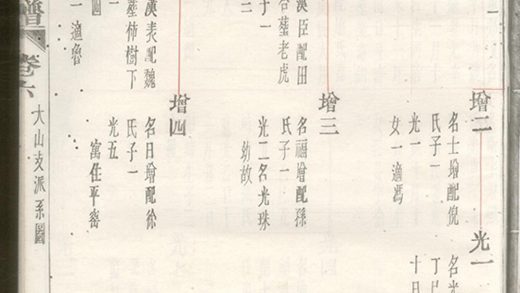 增二
名士增配倪
氏子一
光一
女一適馮
光一
名光
丁巳
十日
漢臣配田
子一
塋老虎
三
增三
名福增配孫
氏子一
光二名光珠
幼故
漢表配魏
塋伸樹下
一適魯
增四
名日增配徐
氏子一
光五
寓住平密
譜
卷六
大山支派系圖